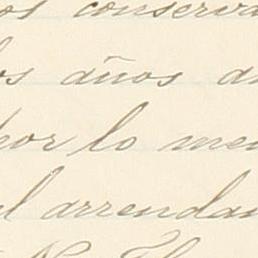 os conserva
los años d
por lo men
el arrenda